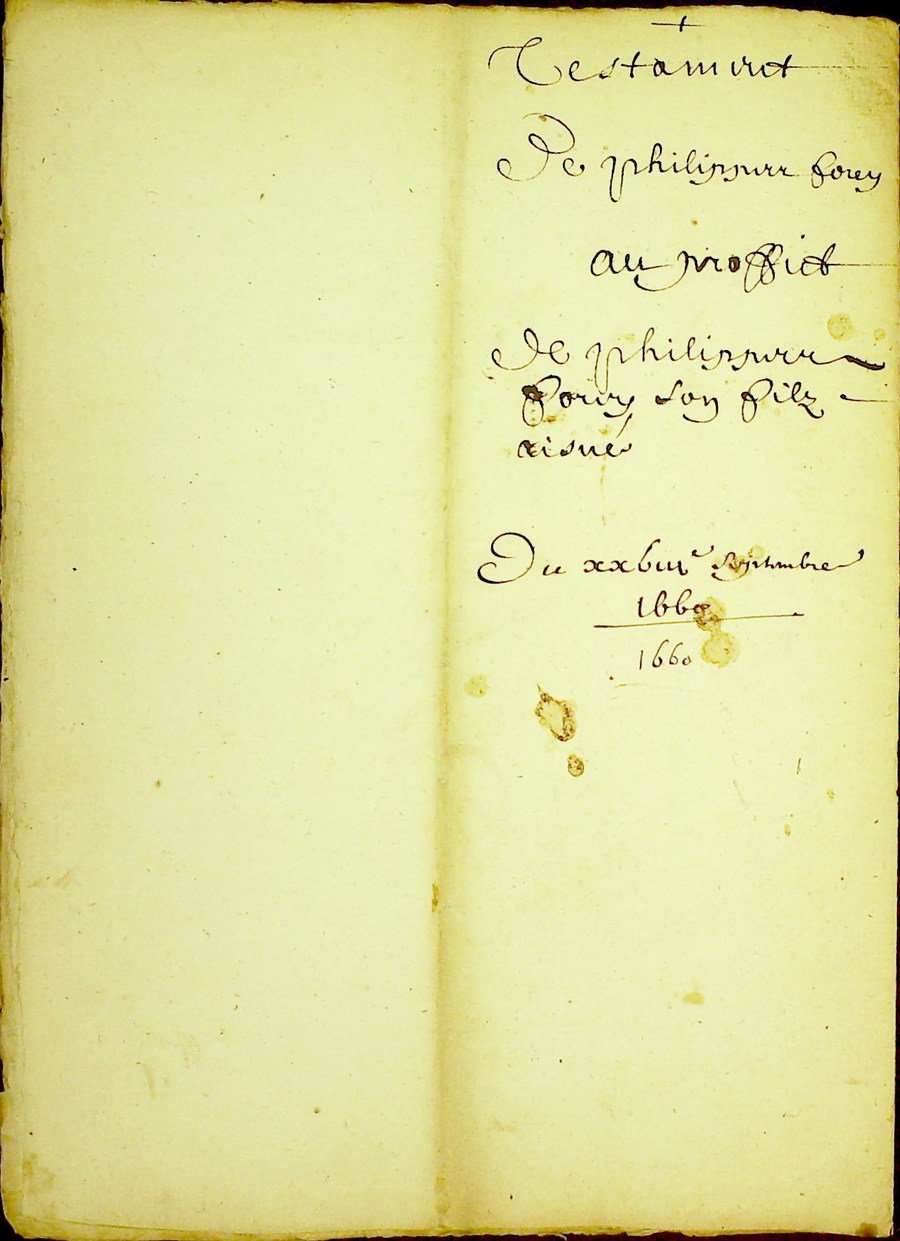 Testament
De philippe forey
au proffict
De philippe
forey son filz
aisné
Du xxviii<sup>e</sup> septembre
1660
1660